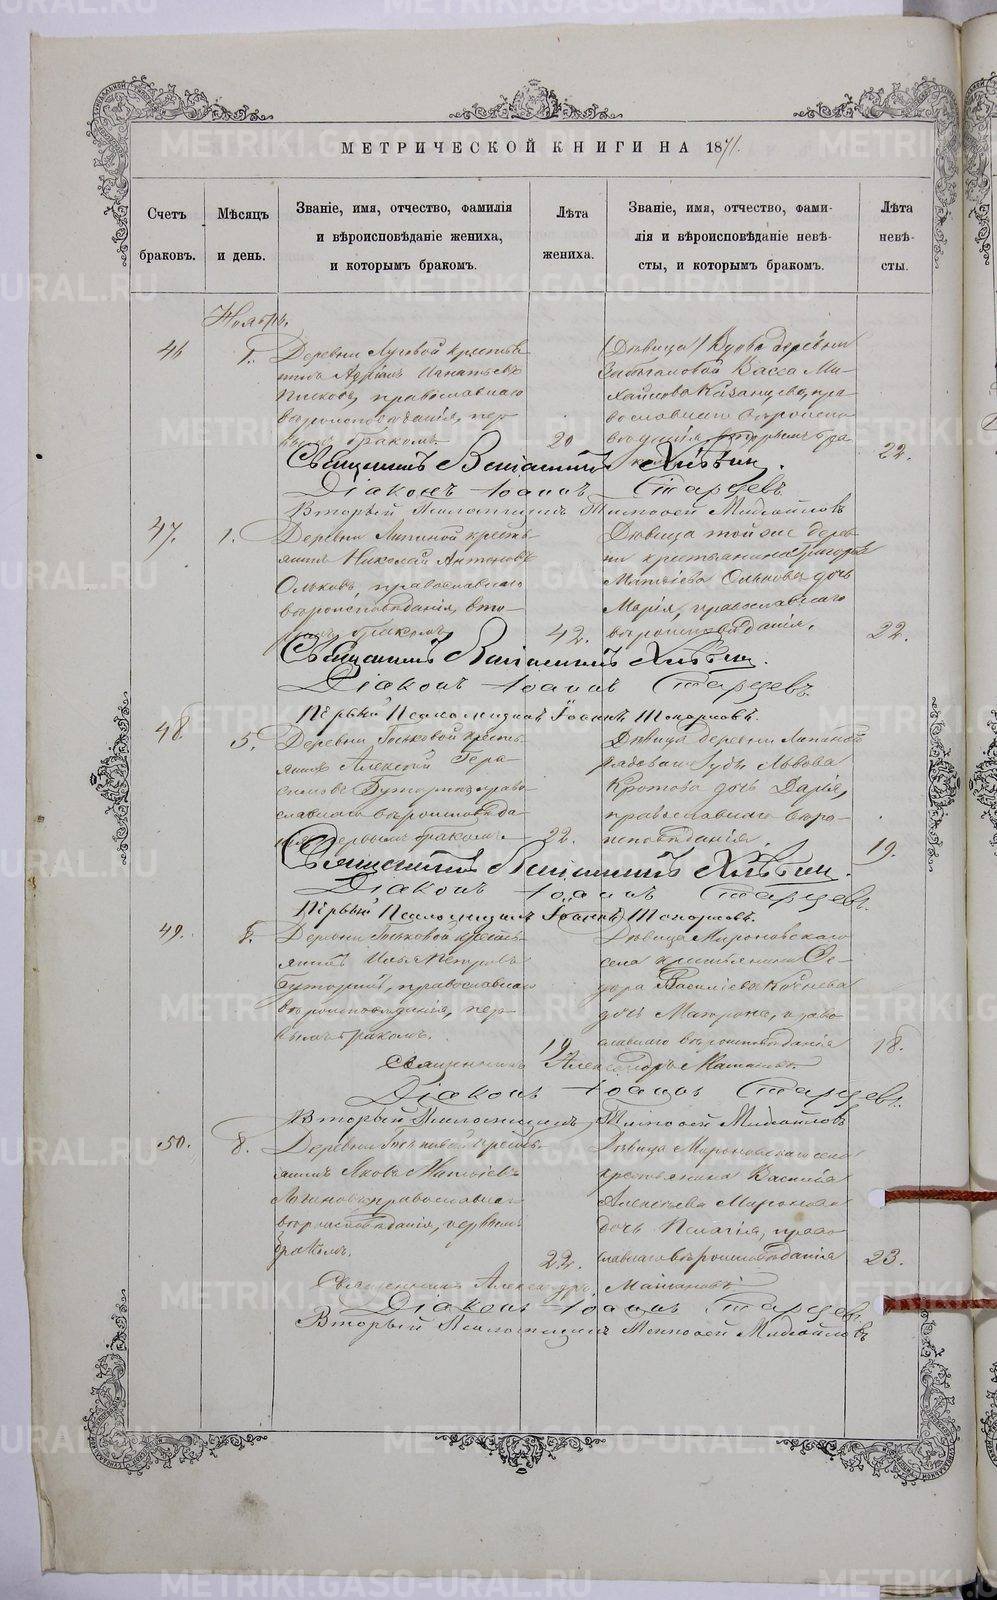 МЕТРИЧЕСКОЙ КНИГИ НА 1871.
Счетъ браковъ.
Мѣсяцъ и день.
Званіе, имя, отчество, фамилія
и вѣроисповѣданіе жениха,
и которымъ бракомъ.
Лѣта жениха.
Званіе, имя, отчество, фами-
лія и вѣроисповѣданіе невѣ-
сты, и которымъ бракомъ.
Лѣта невѣ-
сты.
Ноябрь.
46
1.
Деревни Луговой крестья
нинъ
православнаго
вѣроисповѣданія, пер-
вымъ бракомъ.
20
(Дѣвица) Вдова деревни
Васса Ми-
хайлова Казанцева, пра
вославнаго вѣроиспо
вѣданія, вторымъ бра
комъ.
22.
Священникъ Веніаминъ Хлѣбин
Діаконъ Іоаннъ Старцевъ
Второй Псаломщикъ Тимофей Михайловъ
47.
1.
Деревни Липиной кресть
янинъ Николай Антоновъ
Ольковъ, православнаго
вѣроисповѣданія, вто-
рымъ бракомъ
42.
Дѣвица той же дерев
ни крестьянина Григорія
Матвѣева Олькова дочь
Марія, православнаго
вѣроисповѣданія.
22.
Священникъ Веніаминъ Хлѣбин
Діаконъ Іоаннъ Старцевъ
Первый Псаломщикъ Іоаннъ Топорковъ.
48
5.
Деревни крестья
янинъ Алексѣй Гера
симовъ право
славнаго вѣроисповѣда
первымъ бракомъ.
22.
Дѣвица деревни
Львова
Кротова дочь Дарія,
православнаго вѣро-
исповѣданія.
19.
Священникъ Веніаминъ Хлѣбин
Діаконъ Іоаннъ Старцевъ.
Первый Псаломщикъ Іоаннъ Топорковъ.
49.
8.
Деревни кресть
янинъ Илья Петровъ
православнаго
вѣроисповѣданія, пер-
вымъ бракомъ.
19
Дѣвица Мироновскаго
села крестьянина Ѳе-
дора Василіева
дочь Матрона, право
славнаго вѣроисповѣданія
18.
Священникъ Александръ
Діаконъ Іоаннъ Старцевъ.
Второй Псаломщикъ Тимофей Михайловъ
50.
8.
Деревни кресть
янинъ Яковъ Матвѣевъ
православнаго
вѣроисповѣданія, первымъ
бракомъ.
22.
Дѣвица Мироновскаго села
крестьянина Василія
Алексѣева Миронова
дочь Пелагія, право
славнаго вѣроисповѣданія
23.
Священникъ Александръ
Діаконъ Іоаннъ Старцевъ
Второй Псаломщикъ Тимофей Михайловъ
METRIKI.GASO-URAL.RU